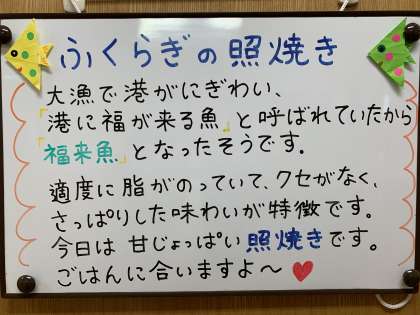 ふくらぎの照焼き
大漁で港がにぎわい、
「港に福が来る魚」と呼ばれていたから
「福来魚」となったそうです.
適度に脂がのっていて、クセがなく、
さっぱりした味わいが特徴です。
今日は甘じょっぱい照焼きです。
ごはんに合いますよ〜♥